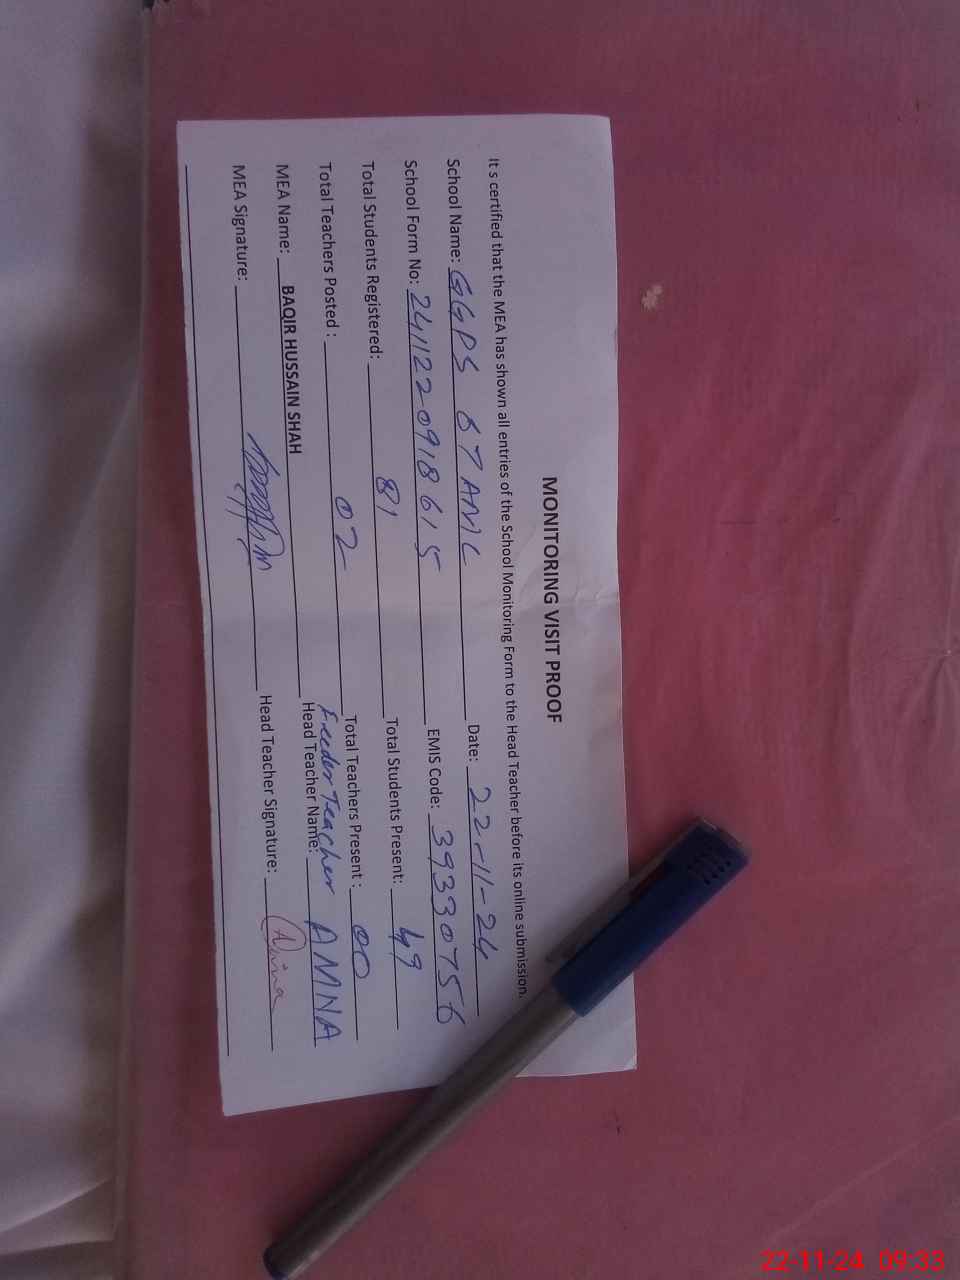 MONITORING VISIT PROOF
It s certified that the MEA has shown all entries of the School Monitoring Form to the Head Teacher before its online submission.
School Name: GGPS 67 AML Date: 22-11-24
School Form No: 241122091861 5 EMIS Code: 39330756
Total Students Registered: 81 Total Students Present: 49
Total Teachers Posted : 02 Total Teachers Present : 00
Feeder Teacher
MEA Name: BAQIR HUSSAIN SHAH Head Teacher Name: AMNA
MEA Signature: Head Teacher Signature: Amna
22-11-24 09:33